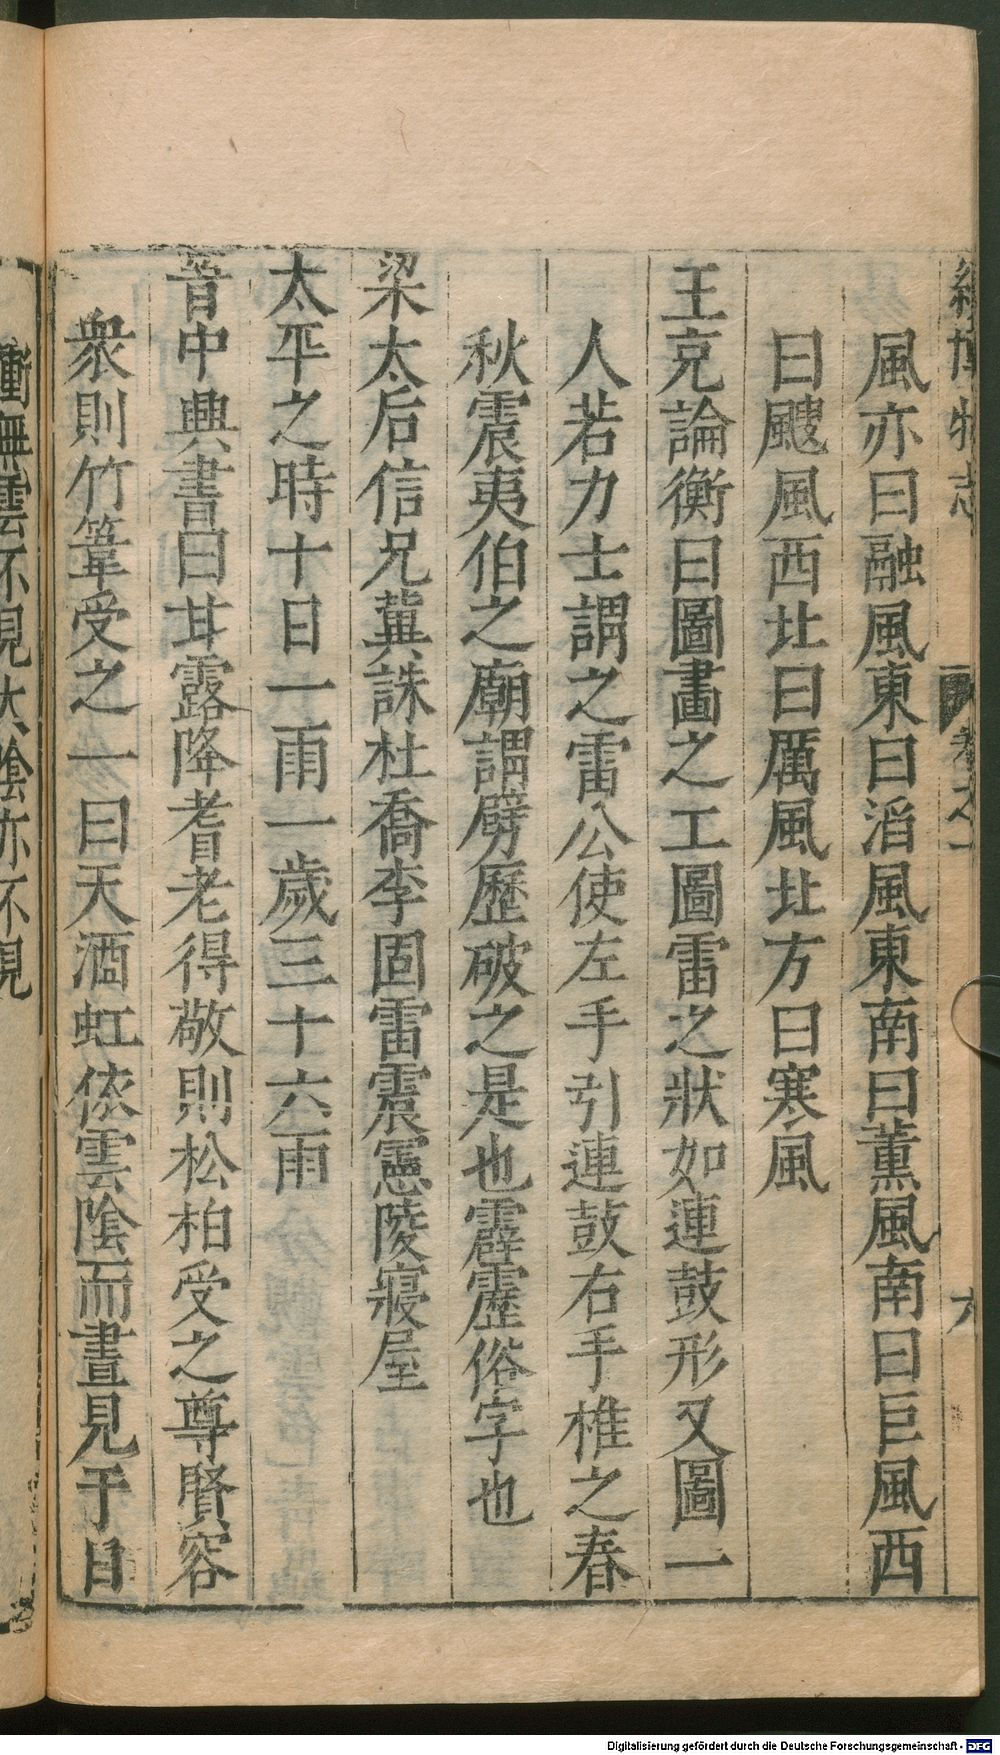 續博物志 卷之一 六
風亦曰融風東曰滔風東南曰薰風南曰巨風西
曰飂風西北曰厲風北方曰寒風
王充論衡曰圖畫之工圖雷之狀如連鼓形又圖一
人若力士謂之雷公使左手引連鼓右手椎之春
秋震夷伯之廟謂劈歷破之是也霹靂俗字也
梁太后信兄冀誅杜喬李固雷震憲陵寢屋
太平之時十日一雨一歲三十六雨
晉中興書曰甘露降耆老得敬則松柏受之尊賢容
衆則竹葦受之一曰天酒虹依雲陰而晝見于日
衝無雲不見太陰亦不見
Digitalisierung gefördert durch die Deutsche Forschungsgemeinschaft - DFG